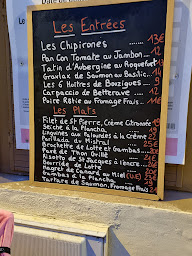 Les Entrées
Les Chipirones ..... 13€
Pan Con Tomate au Jambon ... 12
Tatin d'Aubergine au Roquefort 13€
Gravlax de Saumon au Basilic.. 14€
Les 6 Huîtres de Bouzigues
Carpaccio de Betterave
Poire Rôtie au Fromage Frais
Les Plats
Filet de St Pierre, Crème Citronnée
Seiche à la Plancha
Linguines aux Palourdes à la Crème
Parillada du Mistral
Brochette de Lotte et Gambas
Pavé de Thon Grillé
Risotto de St Jacques à l'encre
Bourride de Lotte
Magret de Canard au Miel
Gambas à la Plancha
Tartare de Saumon, Fromage Frais